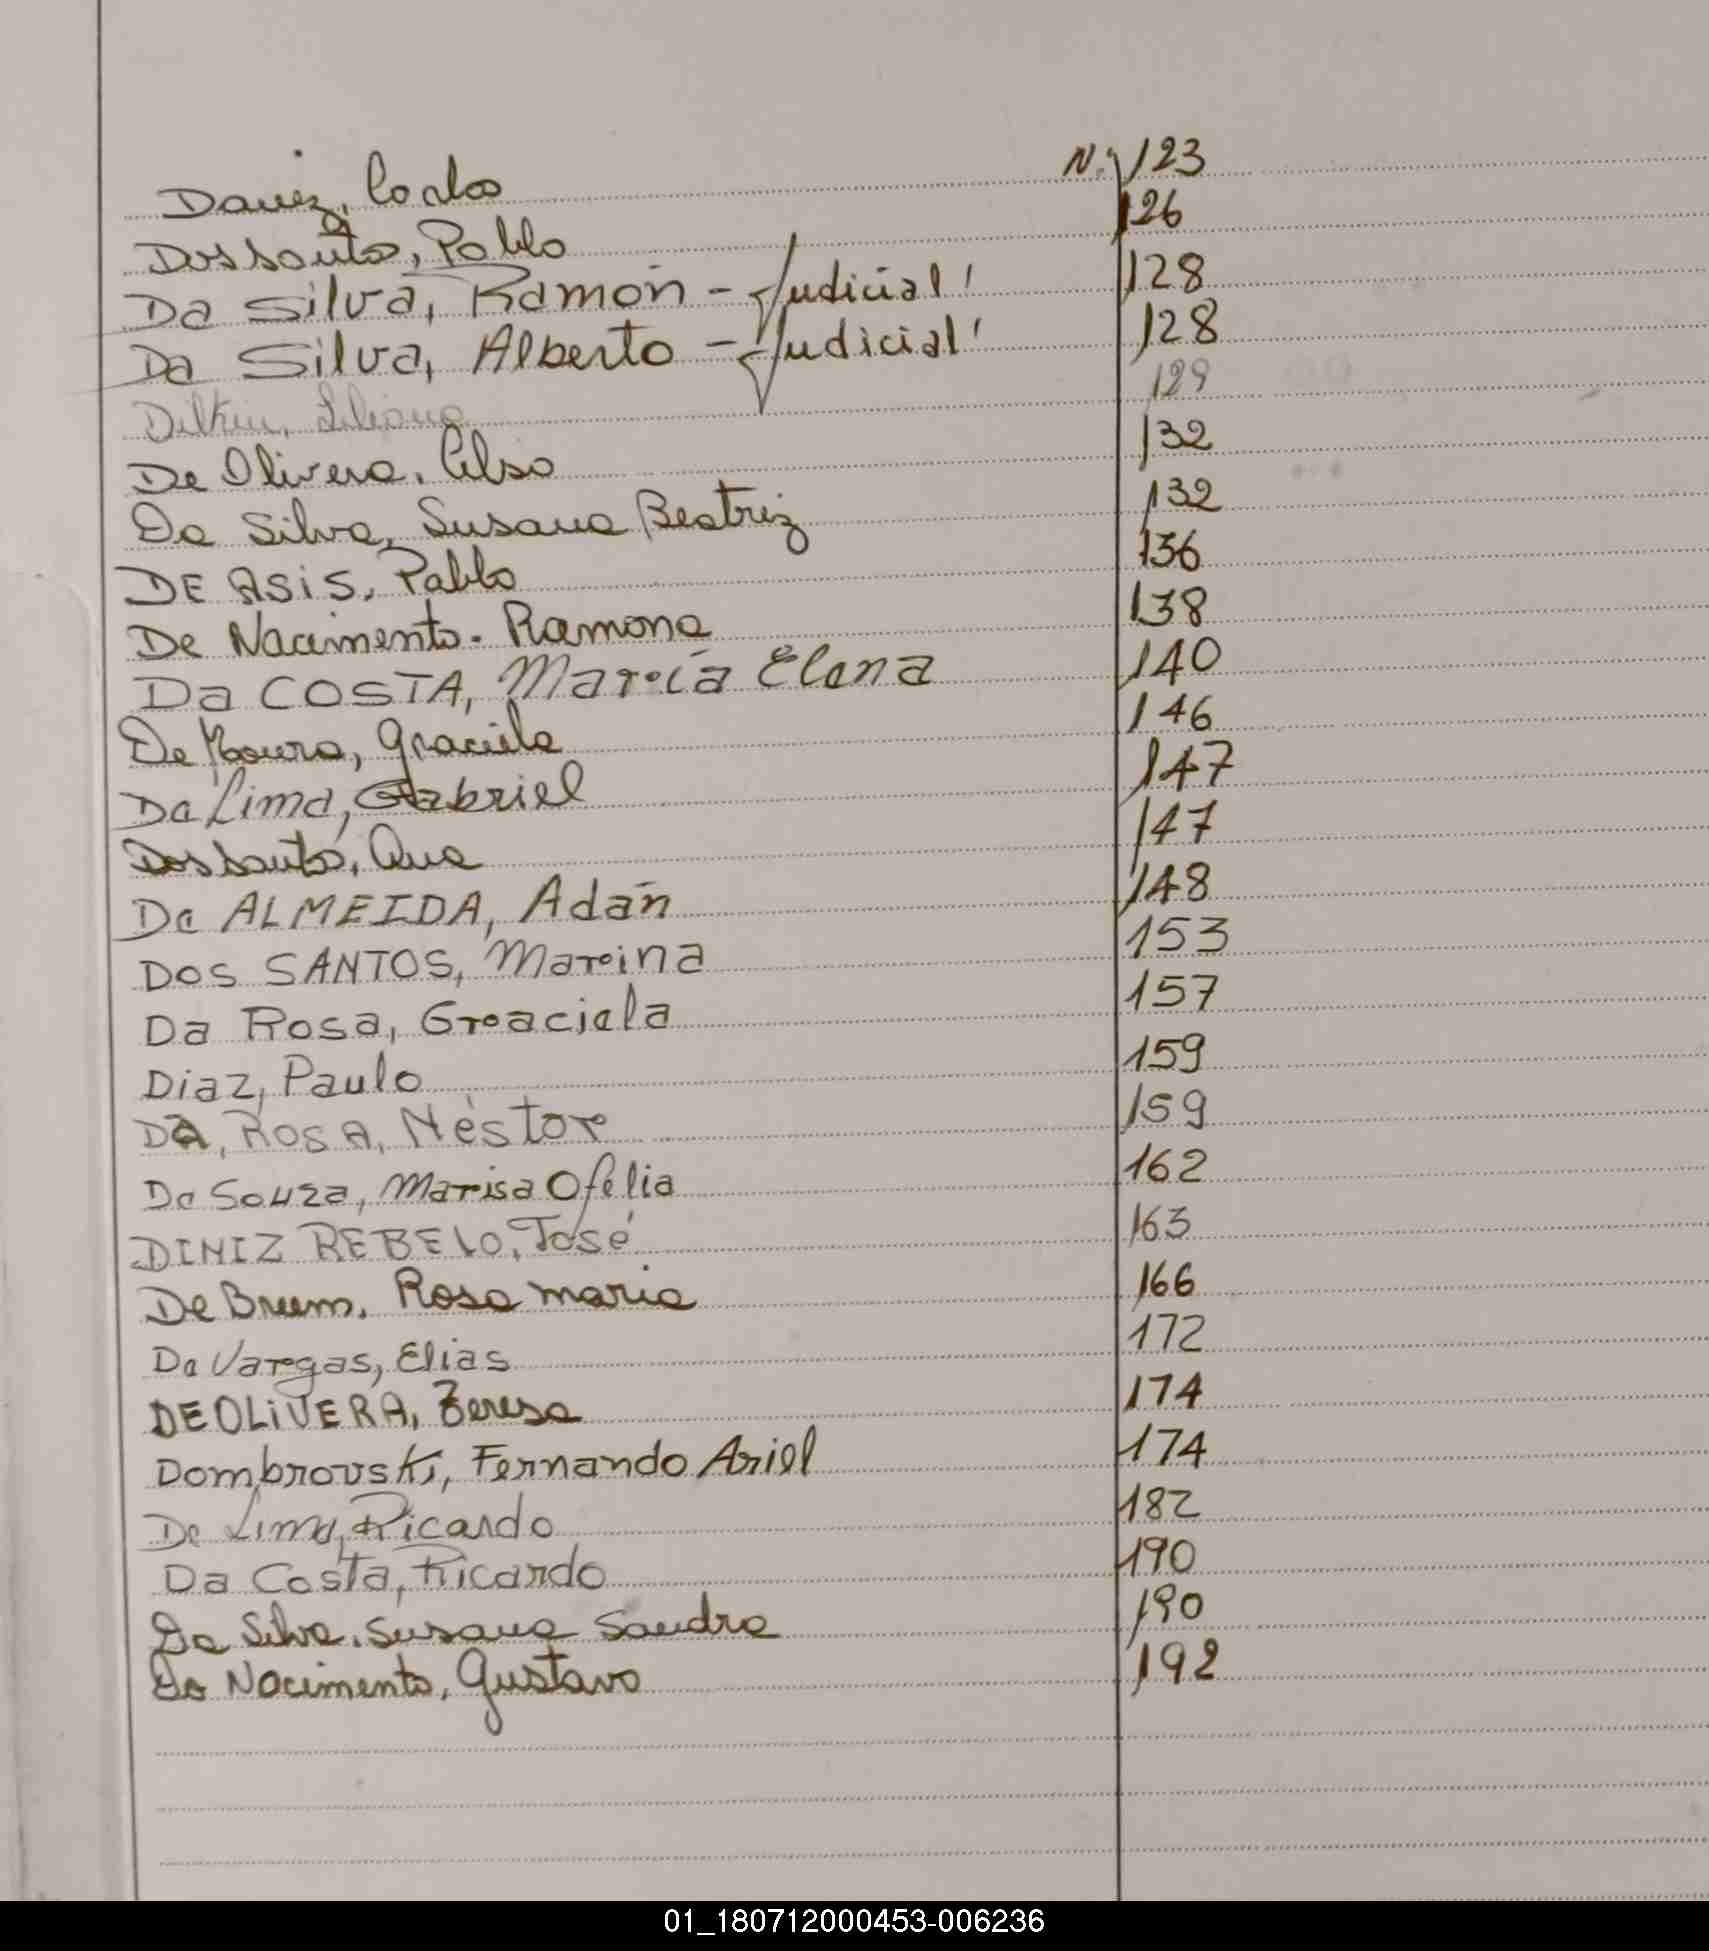 Daviz, Carlos N: 123
Dos Santos, Pablo 126
Da Silva, Ramón - Judicial! 128
Da Silva, Alberto - Judicial! 128
Liliana 129
De Olivera, Celso 132
Da Silva, Susana Beatriz 132
DE ASiS, Pablo 136
De Nacimento. Ramona 138
Da COSTA, María Elena 140
De Moura, Graciela 146
Da Lima, Gabriel 147
Dos Santos, Ana 147
De ALMEIDA, Adán 148
DOS SANTOS, Marina 153
Da Rosa, Graciela 157
Diaz, Paulo 159
DA, ROSA, Néstor 159
De Souza, Marisa Ofelia 162
DINIZ REBELO, José 163
De Brum, Rosa maria 166
De Vargas, Elias 172
DE OLiVERA, Teresa 174
Dombrovski, Fernando Ariel 174
De Lima, Ricardo 182
Da Costa, Ricardo 190
Da Silva, Susana Sandra 190
Do Nacimento, Gustavo 192
01_180712000453-006236